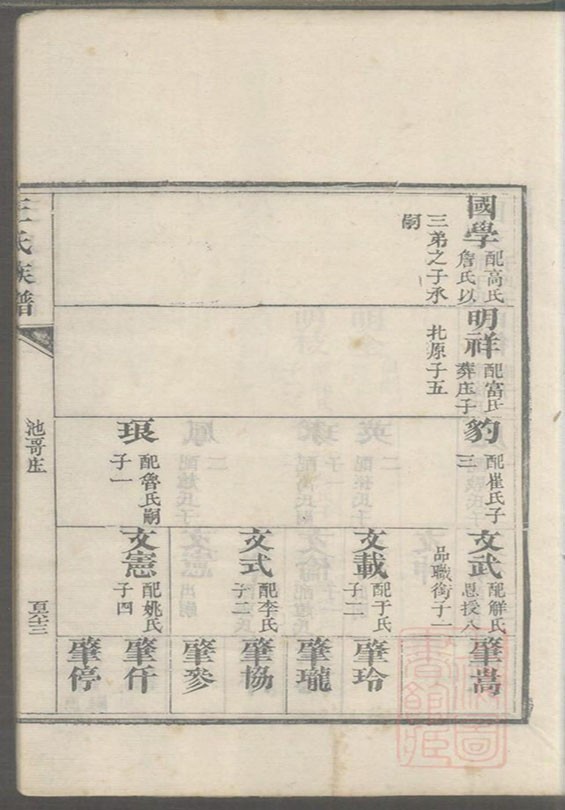 國學
配高氏
詹氏以
三弟之子承
嗣
明祥
配富氏
葬庄子
北原子五
豹
配崔氏子
三
琅
配魯氏嗣
子一
文武
配解氏
恩授八
品職銜子一
文載
配于氏
子二
文式
配李氏
子二
文憲
配姚氏
子四
肇嵩
肇玲
肇瓏
肇協
肇參
肇仟
肇停
王氏族譜
池哥庄